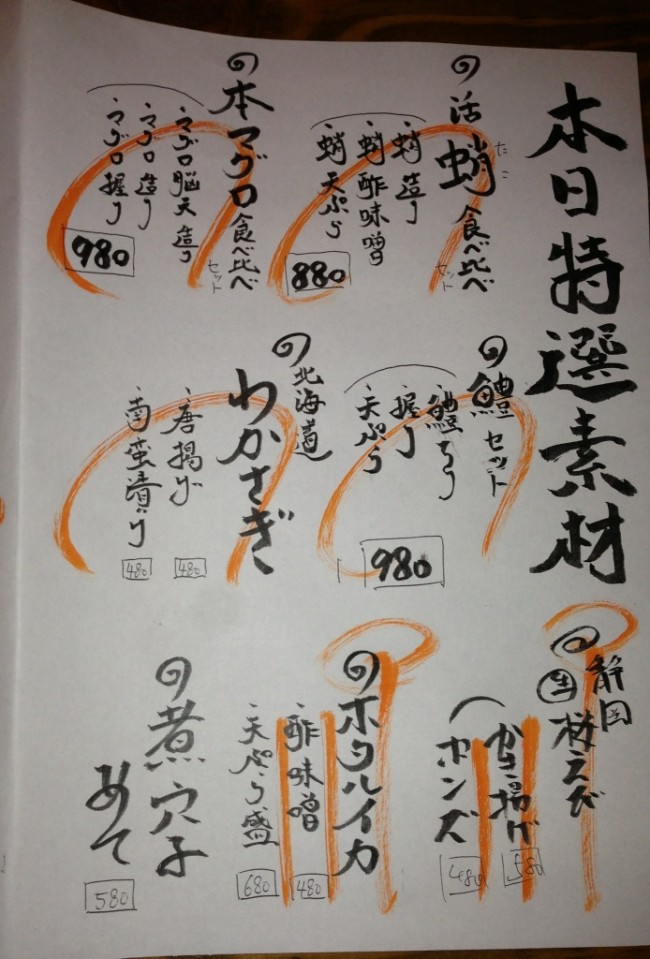 本日特選素材
活蛸食べ比べセット
たこ
蛸造り
蛸酢味噌
蛸天ぷら
880
本マグロ食べ比べセット
マグロ脳天造り
マグロ造り
マグロ握り
980
鱧セット
鱧ちり
握り
天ぷら
980
北海道
わかさぎ
唐揚げ
480
南蛮漬け
480
静岡
生桜えび
かき揚げ
580
ポンズ
480
ホタルイカ
酢味噌
480
天ぷら盛
680
煮穴子
あて
580